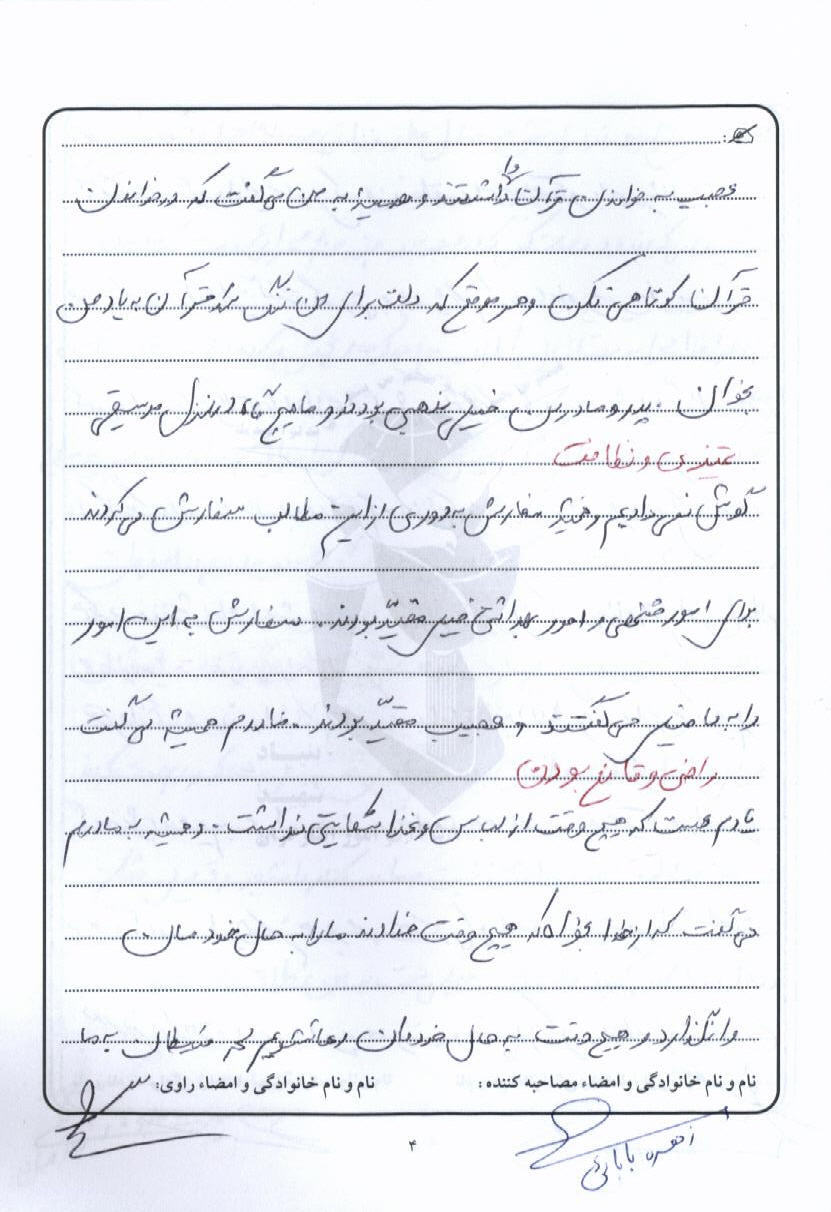 عجیب به خواندن قرآن وا داشتند و همیشه به من می‌گفت که در خواندن
قرآن کوتاهی نکن و هر موقع که دلت برای من تنگ شد قرآن به یاد من
بخوان. پدر و مادرش خیلی مذهبی بودند و ما هیچ گاه در منزل موسیقی
تمیزی و نظافت
گوش نمی‌دادیم و همیشه سفارش به دوری از این مطالب سفارش می‌کردند
برای امور شخصی و امور بهداشتی خیلی مقیّد بودند. سفارش به این امور
را به ما خیلی می‌گفتند و عجیب مقیّد بودند. مادرم همیشه می‌گفت
راضی و قانع بودن
یادم هست که هیچ وقت از لباس و غذا شکایتی نداشت. و همیشه به مادرم
می‌گفت که از خدا بخواه که هیچ وقت خداوند ما را به حال خودمان
وانگذارد و هیچ وقت به حال خودمان رها نشویم که شیطان به ما
نام و نام خانوادگی و امضاء مصاحبه کننده : نام و نام خانوادگی و امضاء راوی:
زهره بابائی
۴